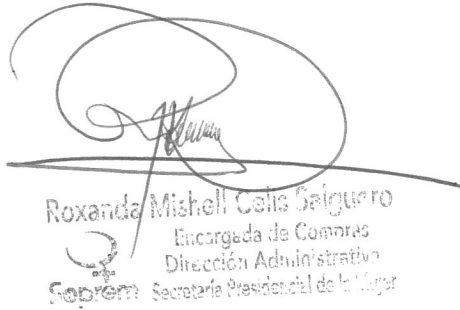 Roxanda Mishell Celis Salguero
Encargada de Compras
Dirección Administrativa
Seprem Secretaría Presidencial de la Mujer